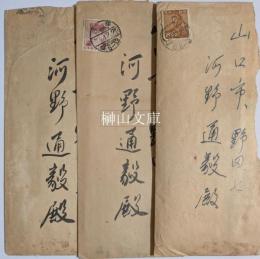 山口市野田
河野通毅殿
河野通毅殿
河野通毅殿
榊山文庫